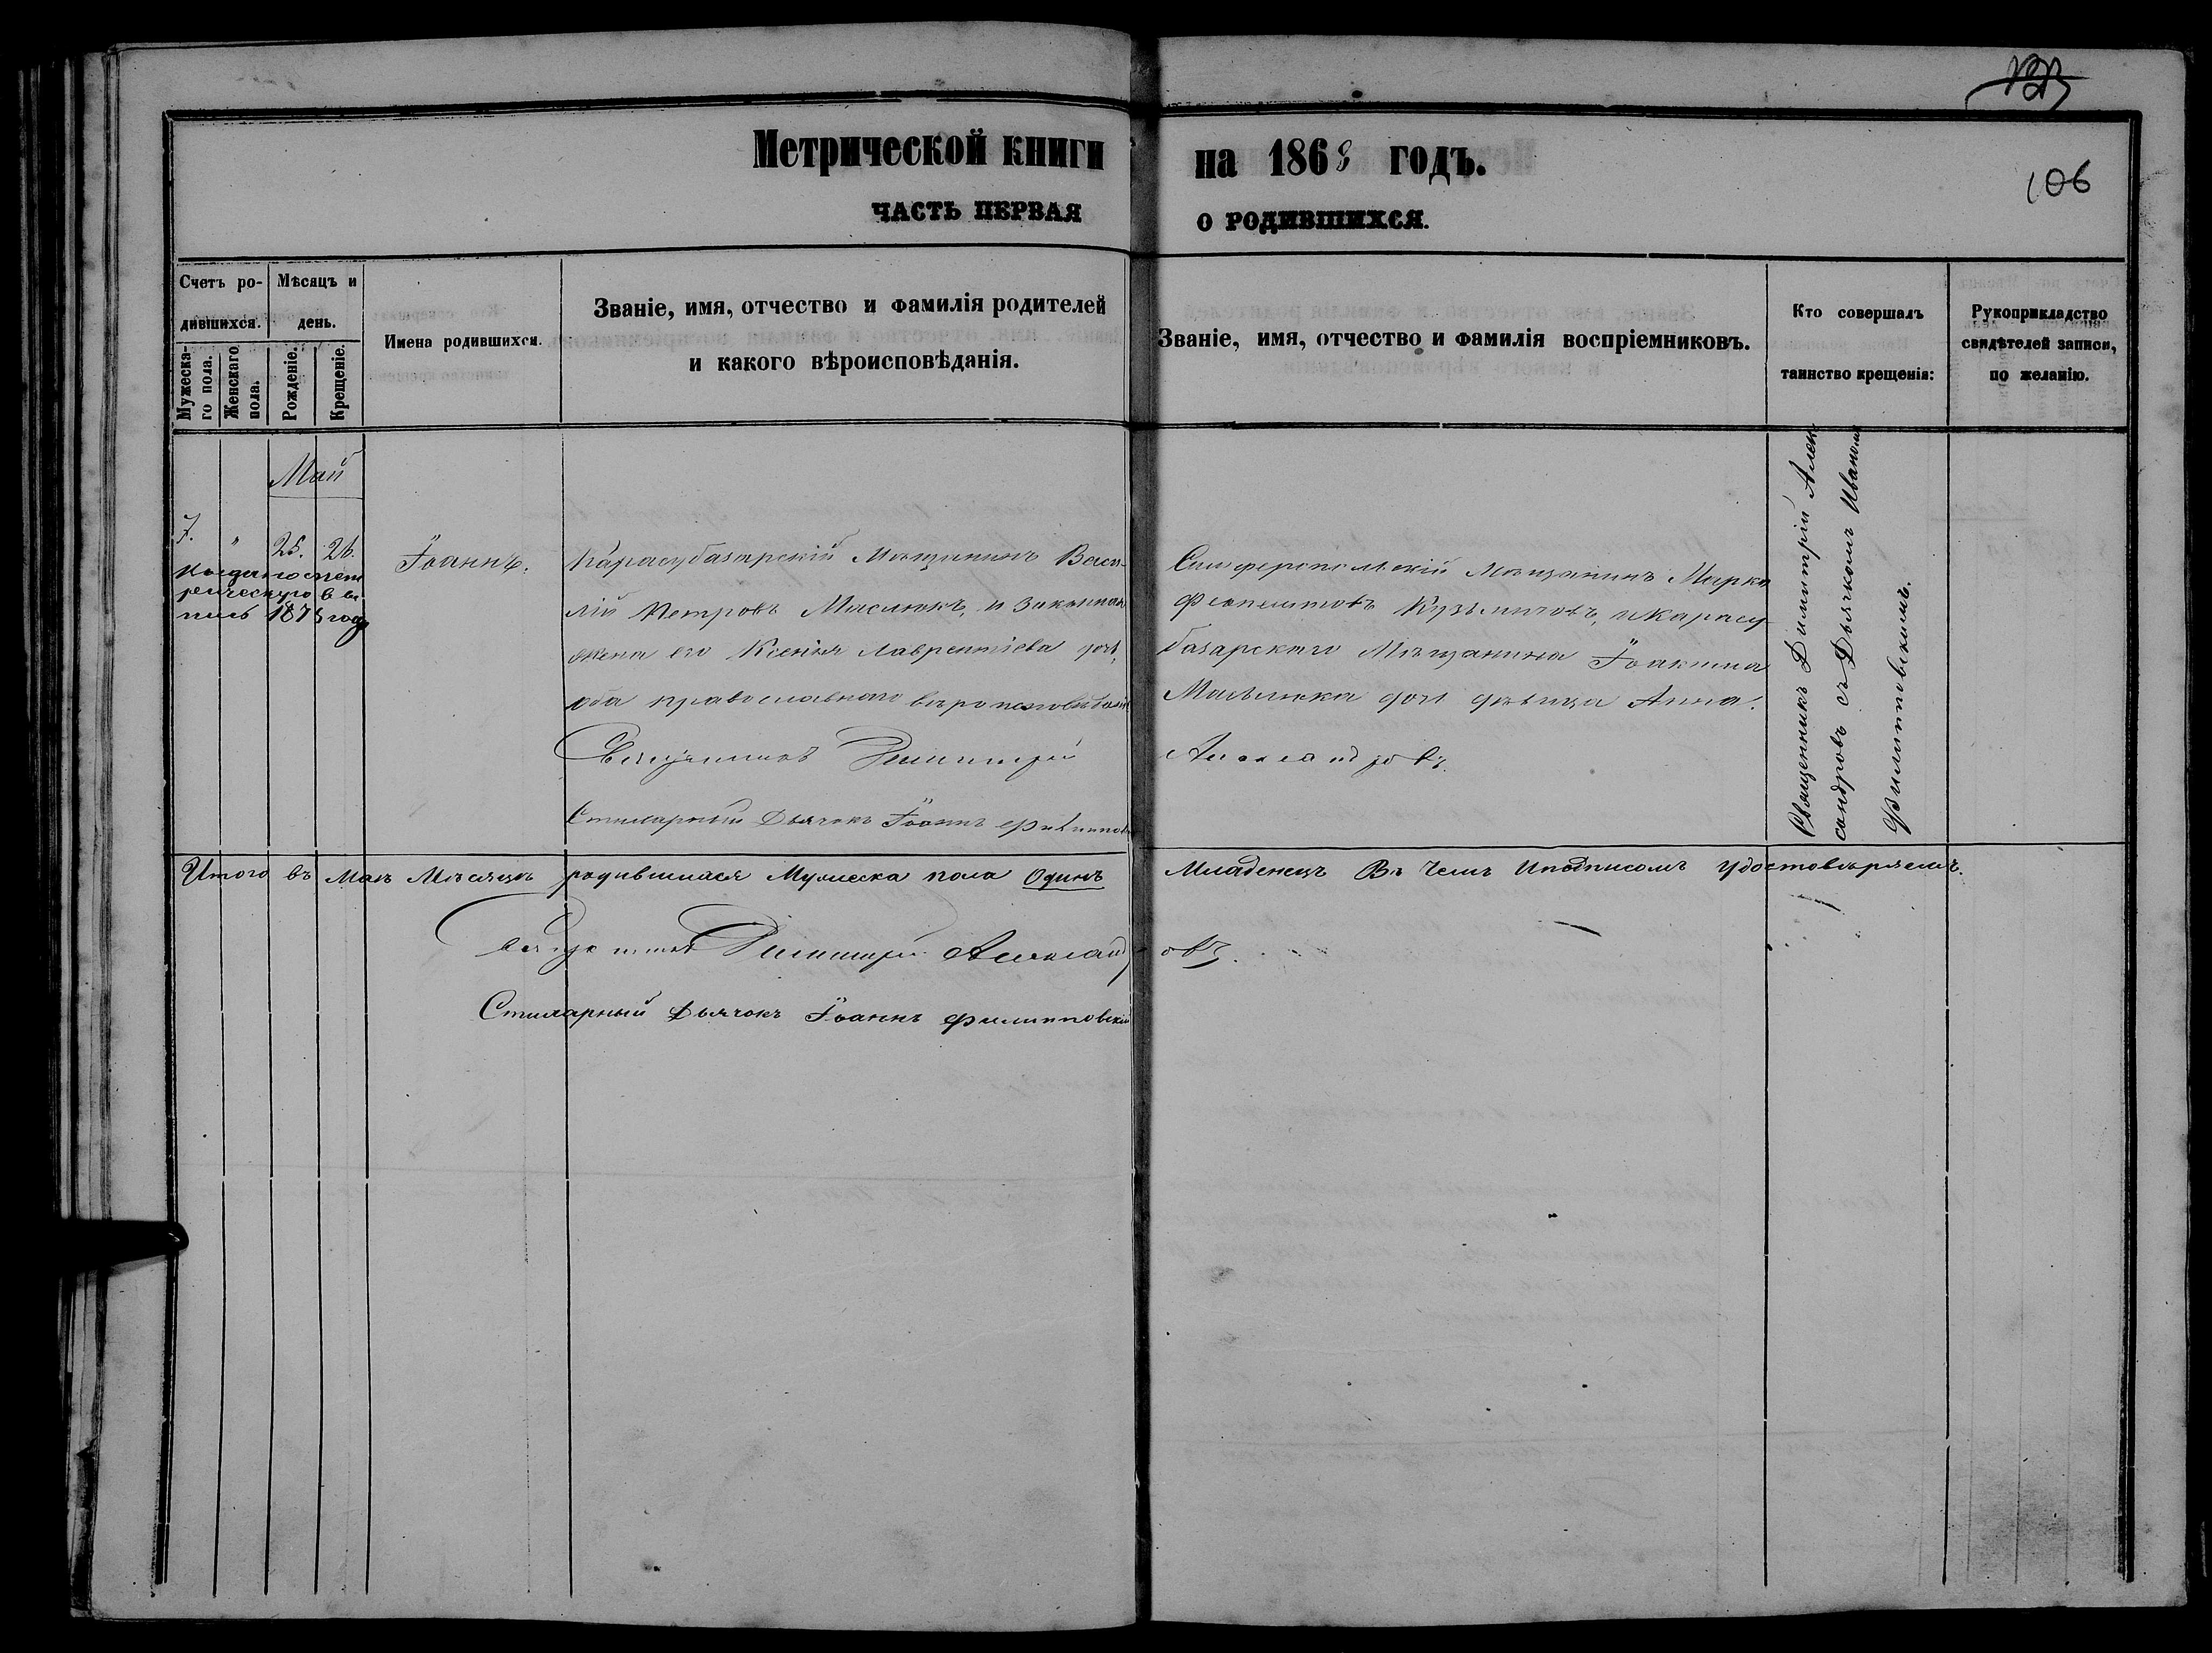 106
Метрической книги на 1868 годъ.
ЧАСТЬ ПЕРВАЯ О РОДИВШИХСЯ.
Счетъ ро-
дившихся.
Мужеска-
го пола.
Женскаго
пола.
Мѣсяцъ и
день.
Рожденіе.
Крещеніе.
Имена родившихся.
Званіе, имя, отчество и фамилія родителей
и какого вѣроисповѣданія.
Званіе, имя, отчество и фамилія воспріемниковъ.
Кто совершалъ
таинство крещенія:
Рукоприкладство
свидѣтелей записи,
по желанію.
Май
7. " 25. 26.
1875 год
Іоаннъ.
Карасубазарскій Мѣщанинъ Васи-
лій Петровъ Маслюкъ, и законная
жена его Ксенія Лаврентіева
оба православнаго вѣроисповѣданія
Священникъ Димитрій
Стихарный Дьячокъ Іоаннъ Филиппов
Симферопольскій Мѣщанинъ Марко
Кузьмичовъ, и Карасу
базарскаго Мѣщанина Іоакима
Маслюка дочь дѣвица Анна.
Александровъ.
Священникъ Димитрій Алек-
сандровъ съ Дьячкомъ Иваномъ
Филипповскимъ.
Итого въ Маѣ Мѣсяцѣ родившихся Мужеска пола Одинъ Младенецъ Въ Чемъ Иподписомъ Удостовѣряемъ.
Священникъ Димитрій Александровъ.
Стихарный Дьячокъ Іоаннъ Филипповскій